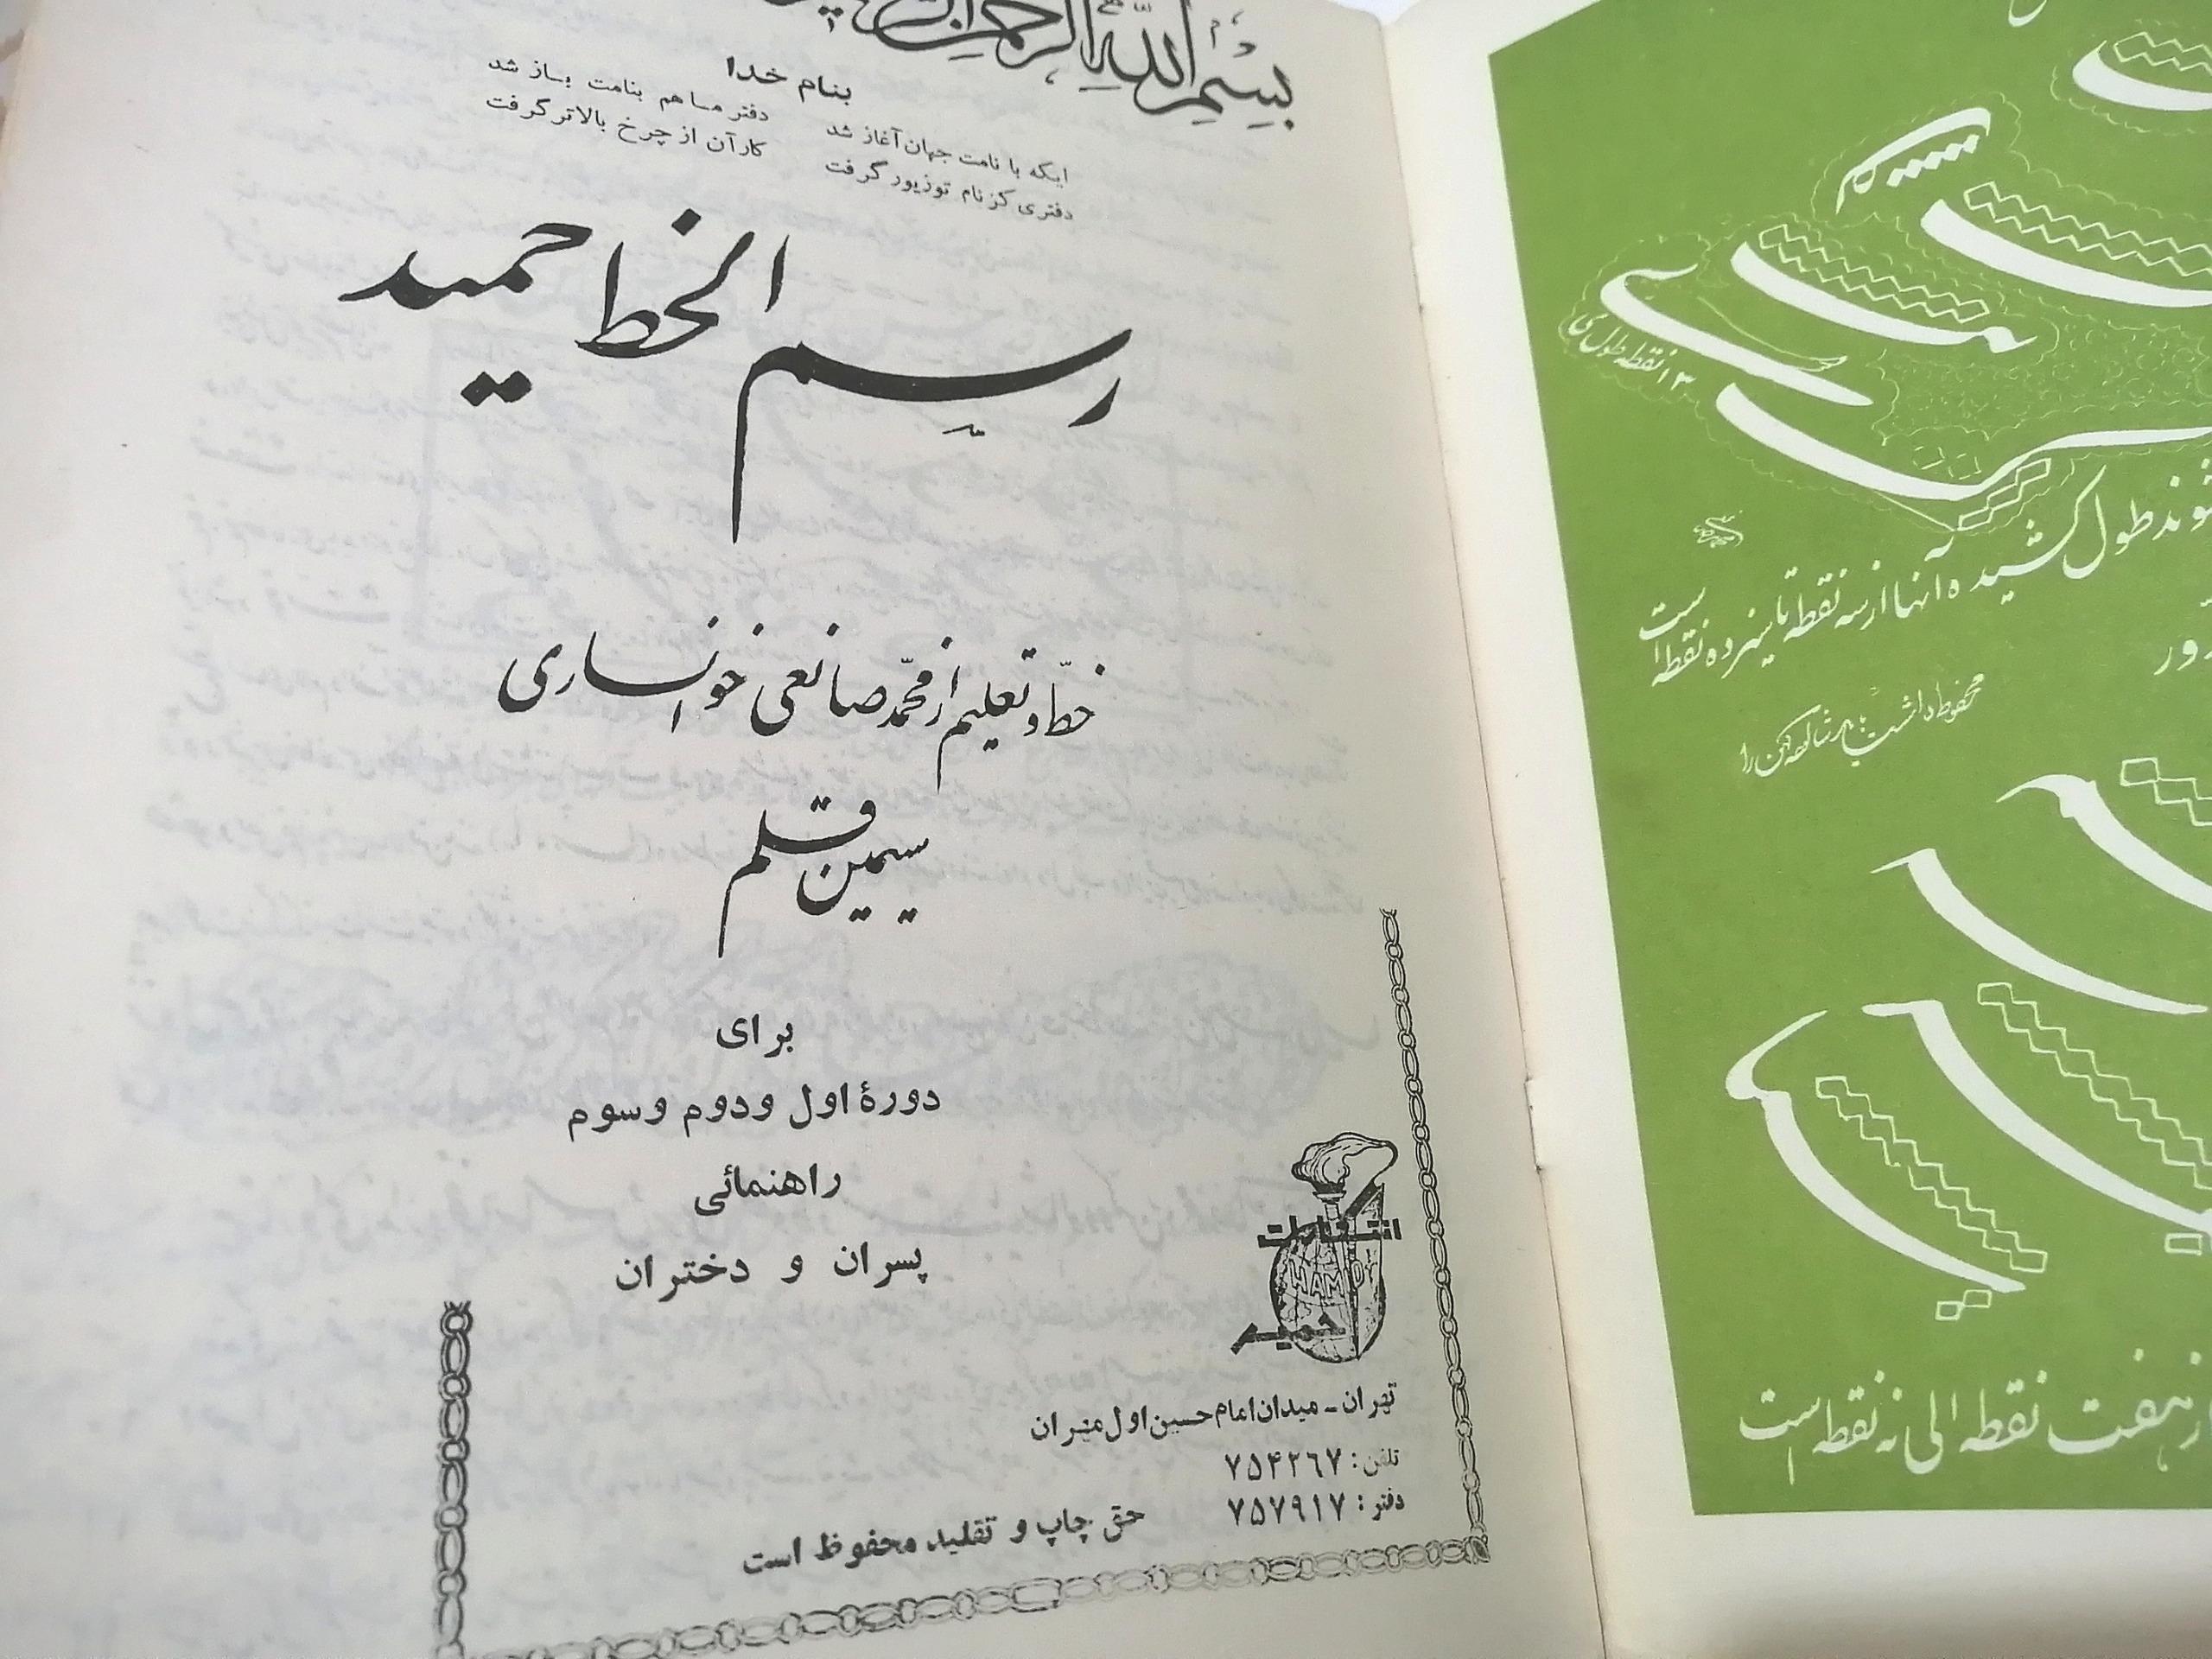 بسم الله الرحمن
بنام خدا
ایکه با نامت جهان آغاز شد
دفتر ما هم بنامت بساز شد
دفتری کز نام تو زیور گرفت
کار آن از چرخ بالاتر گرفت
رسم الخط حمید
خط و تعلیم از محمّد صانعی خوانساری
سیمین قلم
برای
دورهٔ اول و دوم و سوم
راهنمائی
پسران و دختران
انتشارات
HAMDY
حمید
تهران - میدان امام حسین اول منران
تلفن: ۷۵۴۲۶۷
دفتر: ۷۵۷۹۱۷
حق چاپ و تقلید محفوظ است
۱۳ نقطه طول ی
شوند طول کشیده آنها از سه نقطه تا سیزده نقطه است
محفوظ داشت
از هفت نقطه الی نه نقطه است